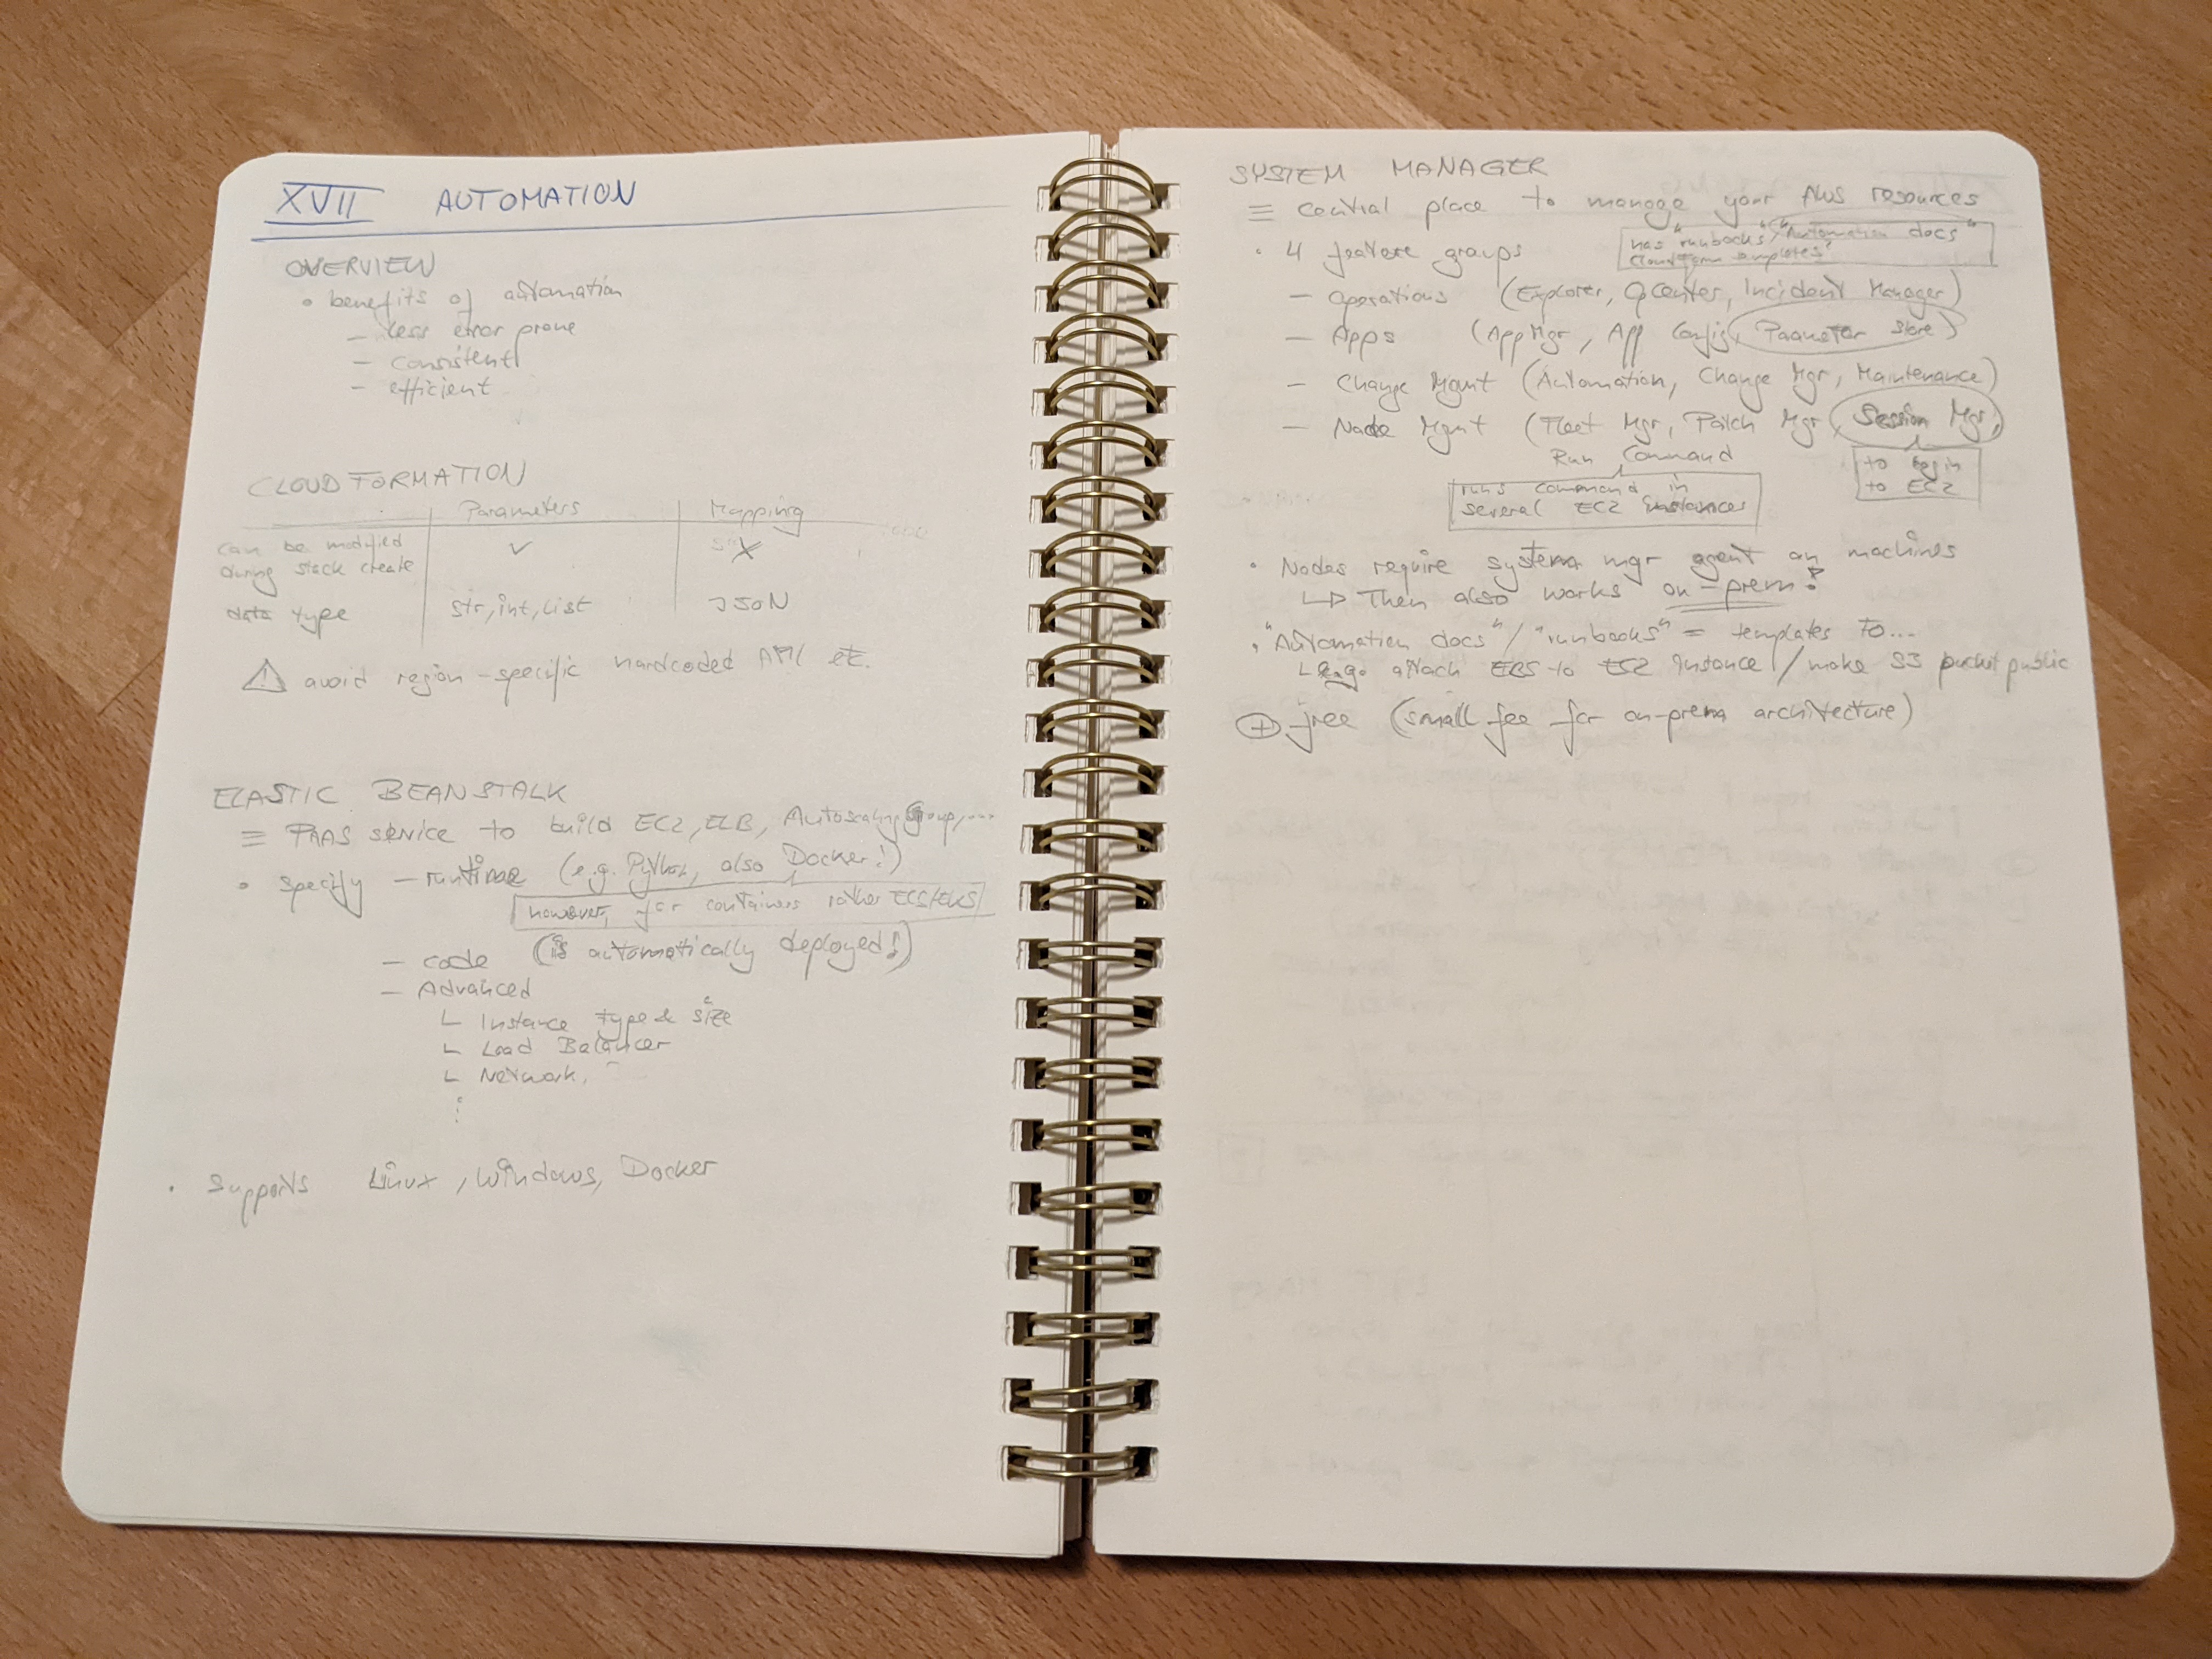 XVII AUTOMATION
OVERVIEW
• benefits of automation
— less error prone
— consistent
— efficient
CLOUD FORMATION
Parameters Mapping
can be modified
during stack create ✓ X
data type str, int, list JSON
⚠ avoid region-specific hardcoded AMI etc.
ELASTIC BEANSTALK
≡ PAAS service to build EC2, ELB, Autoscaling Group, ...
• specify — runtime (e.g. Python, also Docker!)
however, for containers rather ECS/EKS
— code (is automatically deployed!)
— Advanced
∟ Instance type & size
∟ Load Balancer
∟ Network,
⋮
• supports Linux, Windows, Docker
SYSTEM MANAGER
≡ central place to manage your AWS resources
• 4 feature groups
has "runbooks"/"Automation docs"
— Operations (Explorer, OpCenter, Incident Manager)
— Apps (App Mgr, App Config, Parameter Store)
— Change Mgmt (Automation, Change Mgr, Maintenance)
— Node Mgmt (Fleet Mgr, Patch Mgr, Session Mgr,
Run Command
to EC2
runs command in
several EC2 instances
• Nodes require system mgr agent on machines
↳ Then also works on-prem!
• "Automation docs"/"runbooks" = templates to...
∟ e.g. attach EBS to EC2 Instance / make S3 bucket public
⊕ free (small fee for on-prem architecture)